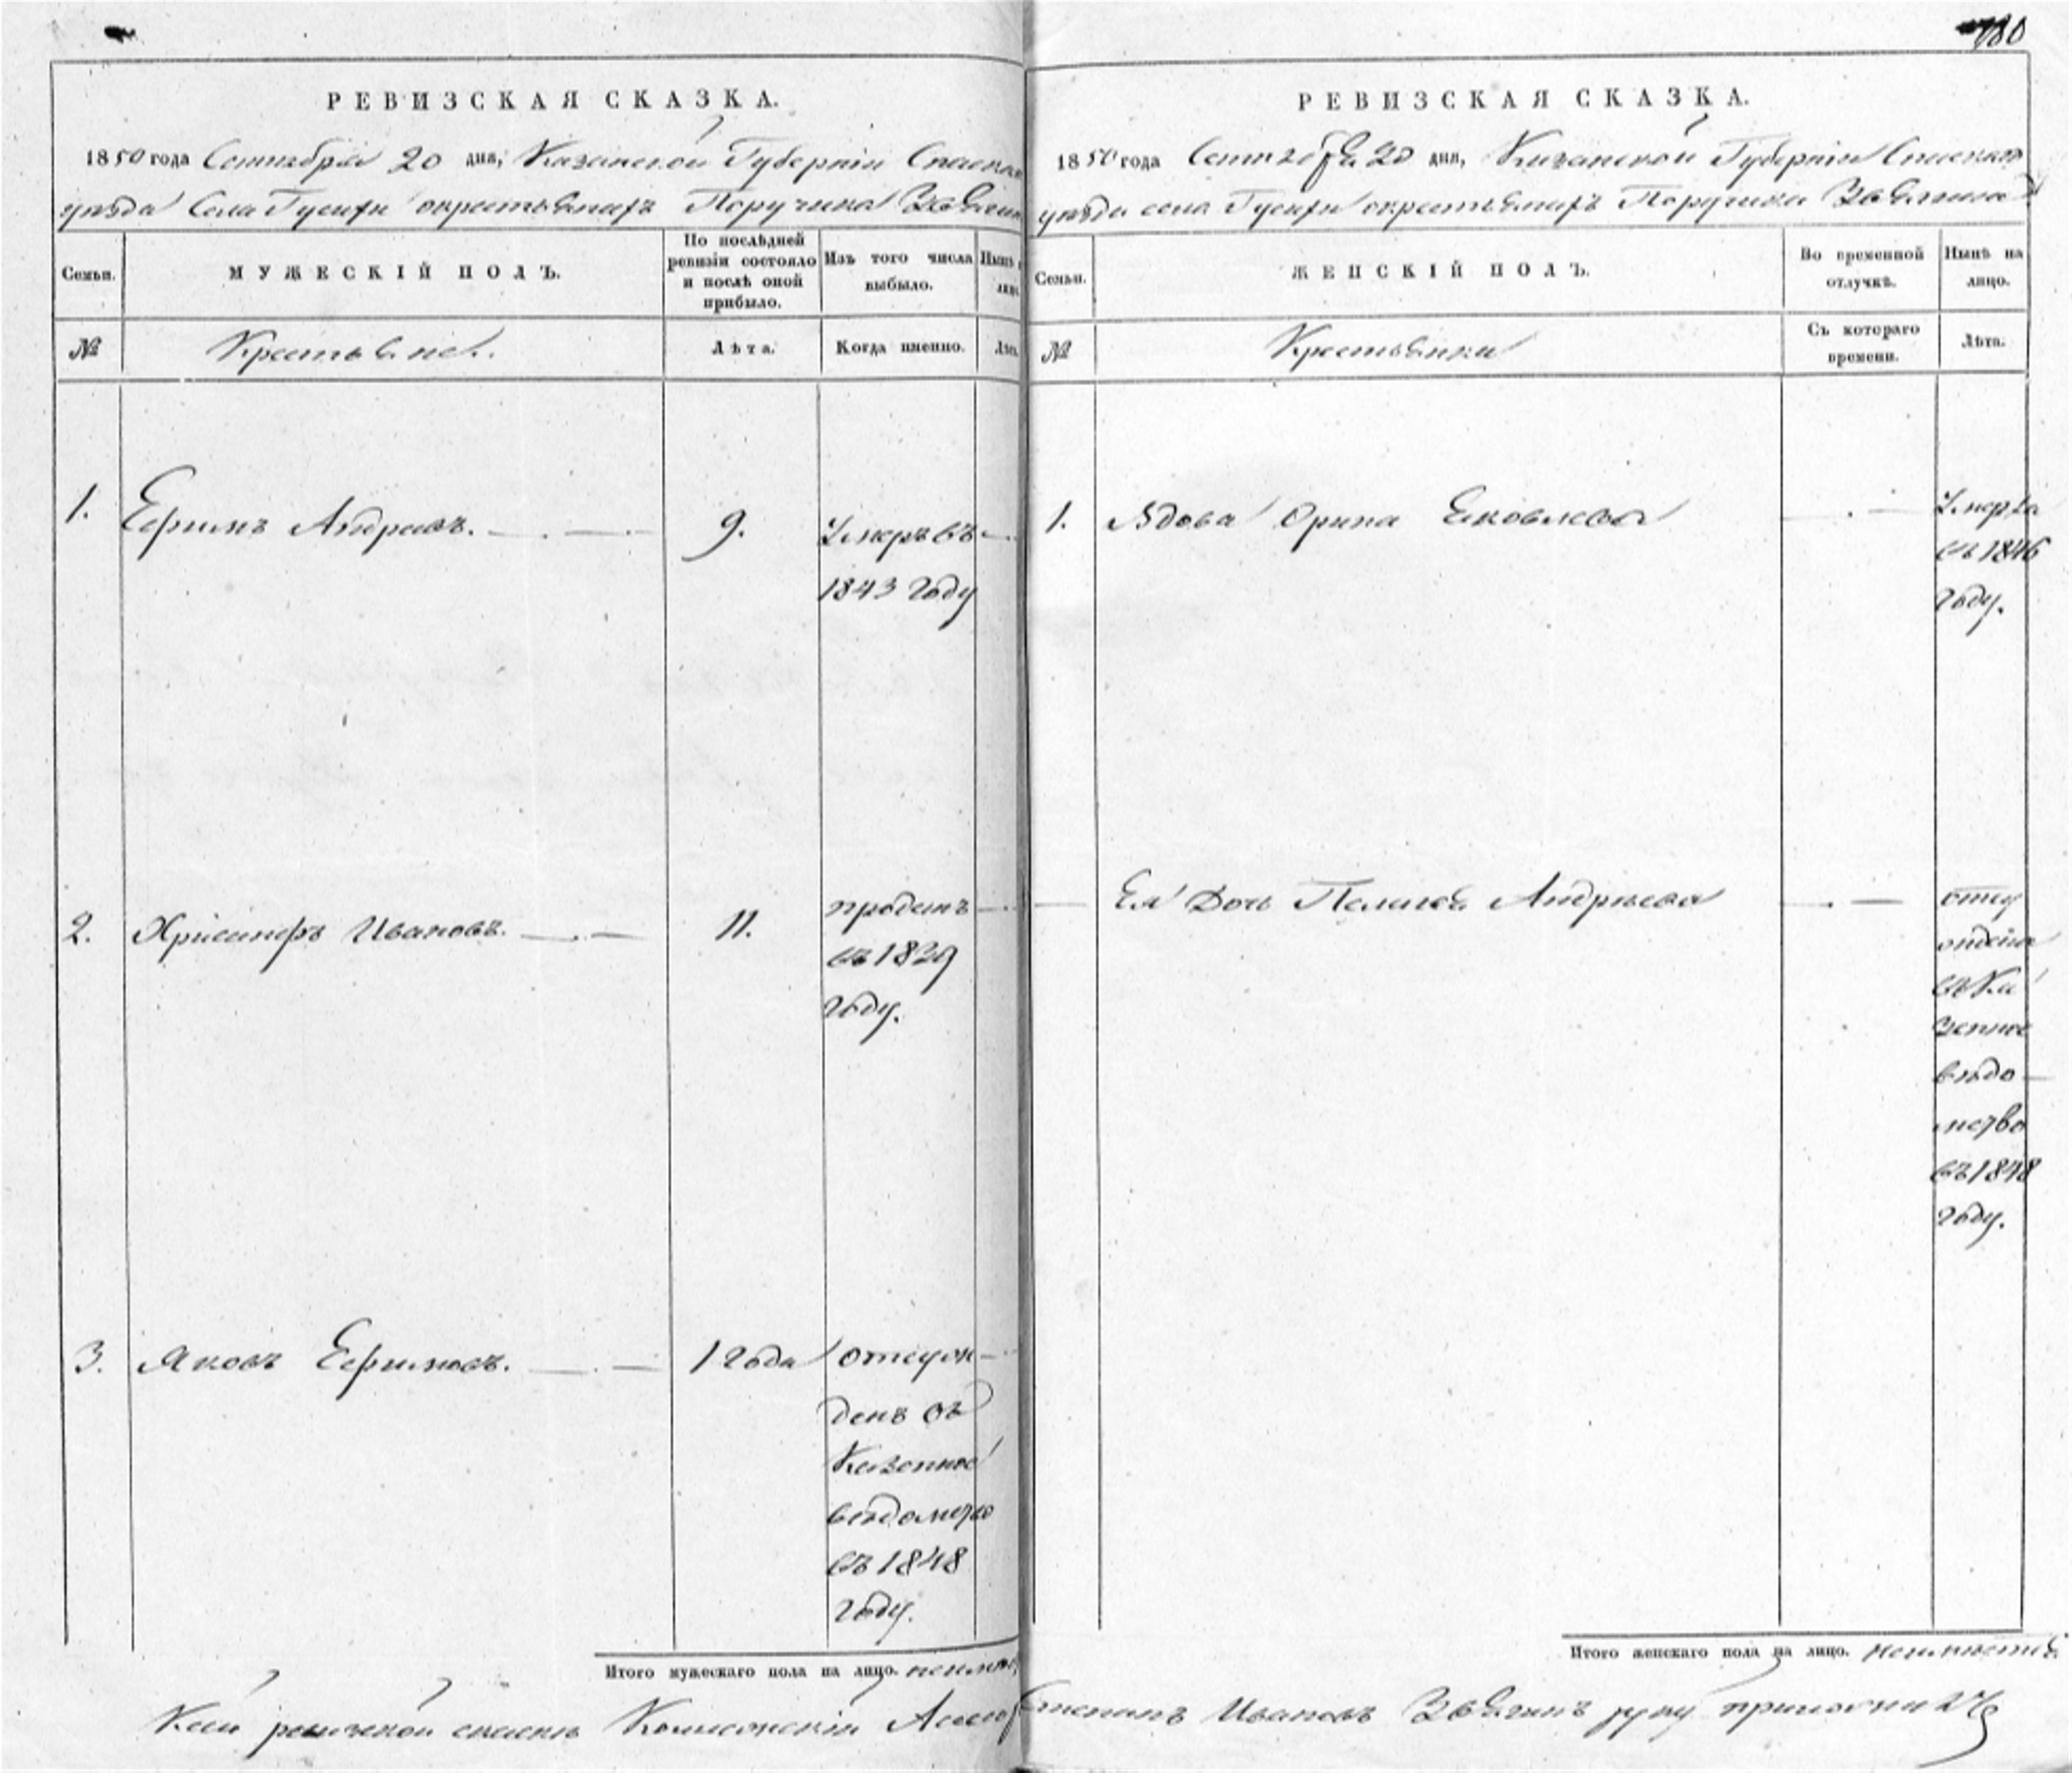 180
РЕВИЗСКАЯ СКАЗКА.
1850 года Сентября 20 дня, Казанской Губерніи Спаскаго
уѣзда Села Гусихи о крестьянахъ Поручика Звягина
Семьи.
МУЖЕСКІЙ ПОЛЪ.
По послѣдней ревизіи состояло и послѣ оной прибыло.
Изъ того числа выбыло.
Нынѣ
№
Крестьяне.
Лѣта.
Когда именно.
Лѣта
1.
Ефимъ Андреевъ.
9.
Умеръ въ
1843 году
2.
Хрисанфъ Ивановъ.
11.
проданъ
въ 1839
году.
3.
Яковъ Ефимовъ.
1 года
отсуж
денъ въ
Казенное
ведомство
въ 1848
году.
Итого мужескаго пола на лицо.
РЕВИЗСКАЯ СКАЗКА.
1850 года Сентября 20 дня, Казанской Губерніи Спаскаго
уѣзда села Гусихи о крестьянахъ Поручика Звягина
Семьи.
ЖЕНСКІЙ ПОЛЪ.
Во временной отлучкѣ.
Нынѣ на лицо.
№
Крестьянки
Съ котораго времени.
Лѣта.
1.
Вдова Орина Яковлева
Умерла
въ 1846
году.
Ея Дочь Пелагея Андреева
отсу
ждена
въ Ка
зенное
вѣдо
мство
въ 1848
году.
Итого женскаго пола на лицо. неимѣется
К сей ревизской сказке Степанъ Ивановъ Звягинъ руку приложилъ